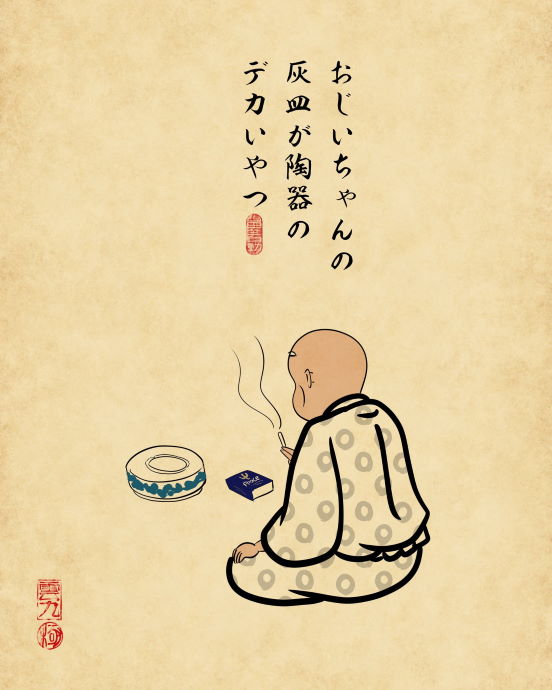 おじいちゃんの
灰皿が陶器の
デカいやつ
Peace